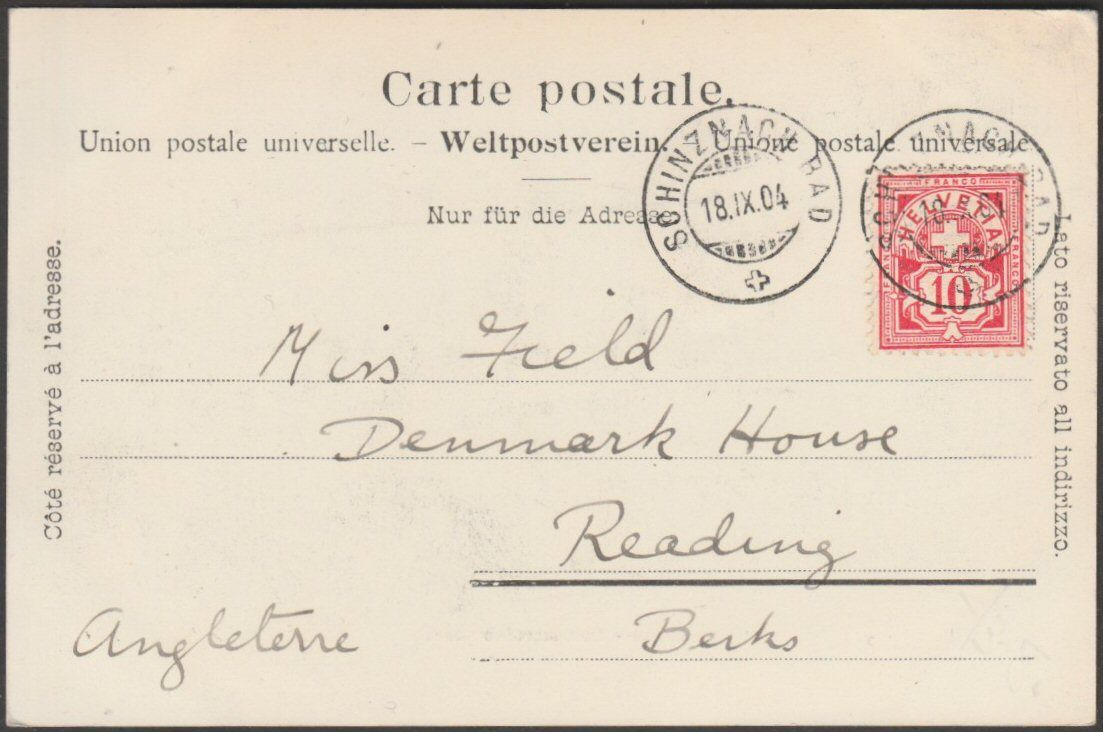 Carte postale.
Union postale universelle. – Weltpostverein. – Unione postale universale
Nur für die Adresse
SCHINZNACH BAD
18.IX.04
SCHINZNACH BAD
FRANCO
FRANCO
FRANCO
HELVETIA
10
Côté réservé à l'adresse.
Lato riservato all indirizzo.
Miss Field
Denmark House
Reading
Angleterre Berks